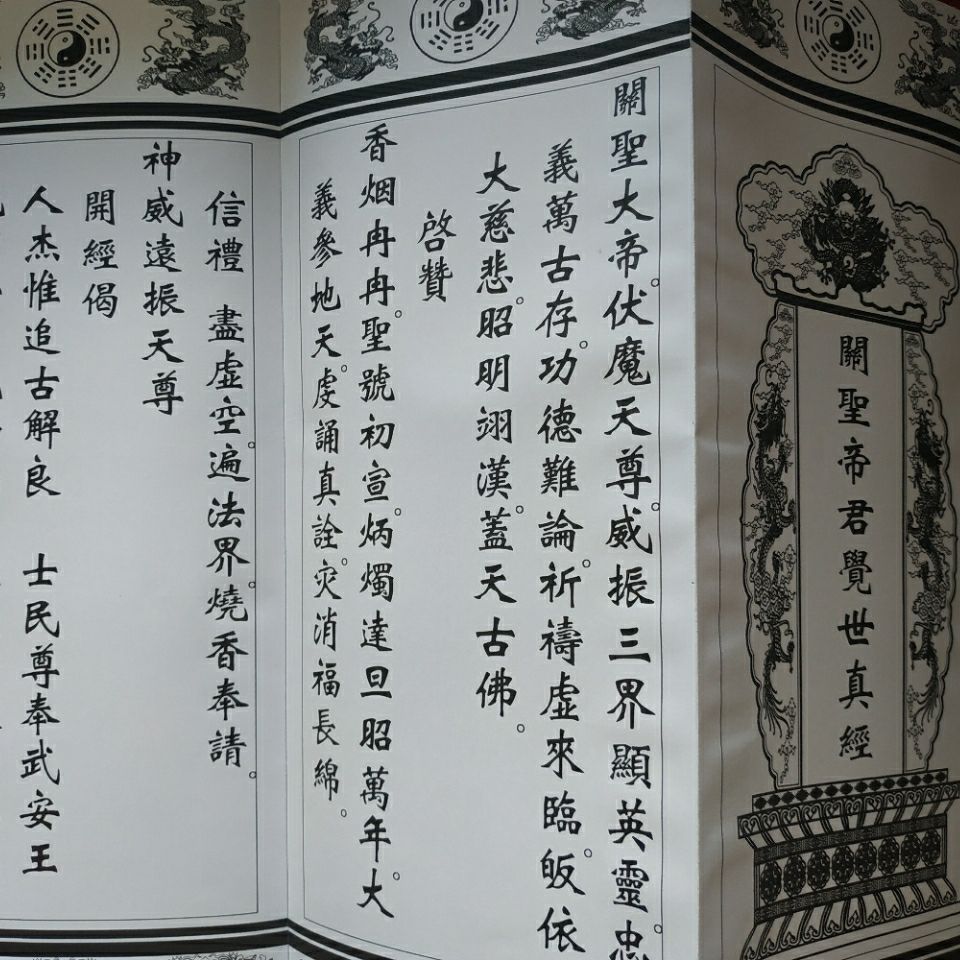 關聖帝君覺世真經
關聖大帝。伏魔天尊。威振三界顯英靈。忠
義萬古存。功德難論。祈禱虛來臨。皈依
大慈悲。昭明翊漢。蓋天古佛。
啓贊
香烟冉冉。聖號初宣。炳燭達旦昭萬年。大
義參地天。虔誦真詮。灾消福長綿。
信禮 盡虛空。遍法界。燒香奉請。
神威遠振天尊
開經偈
人杰惟追古解良 士民尊奉武安王